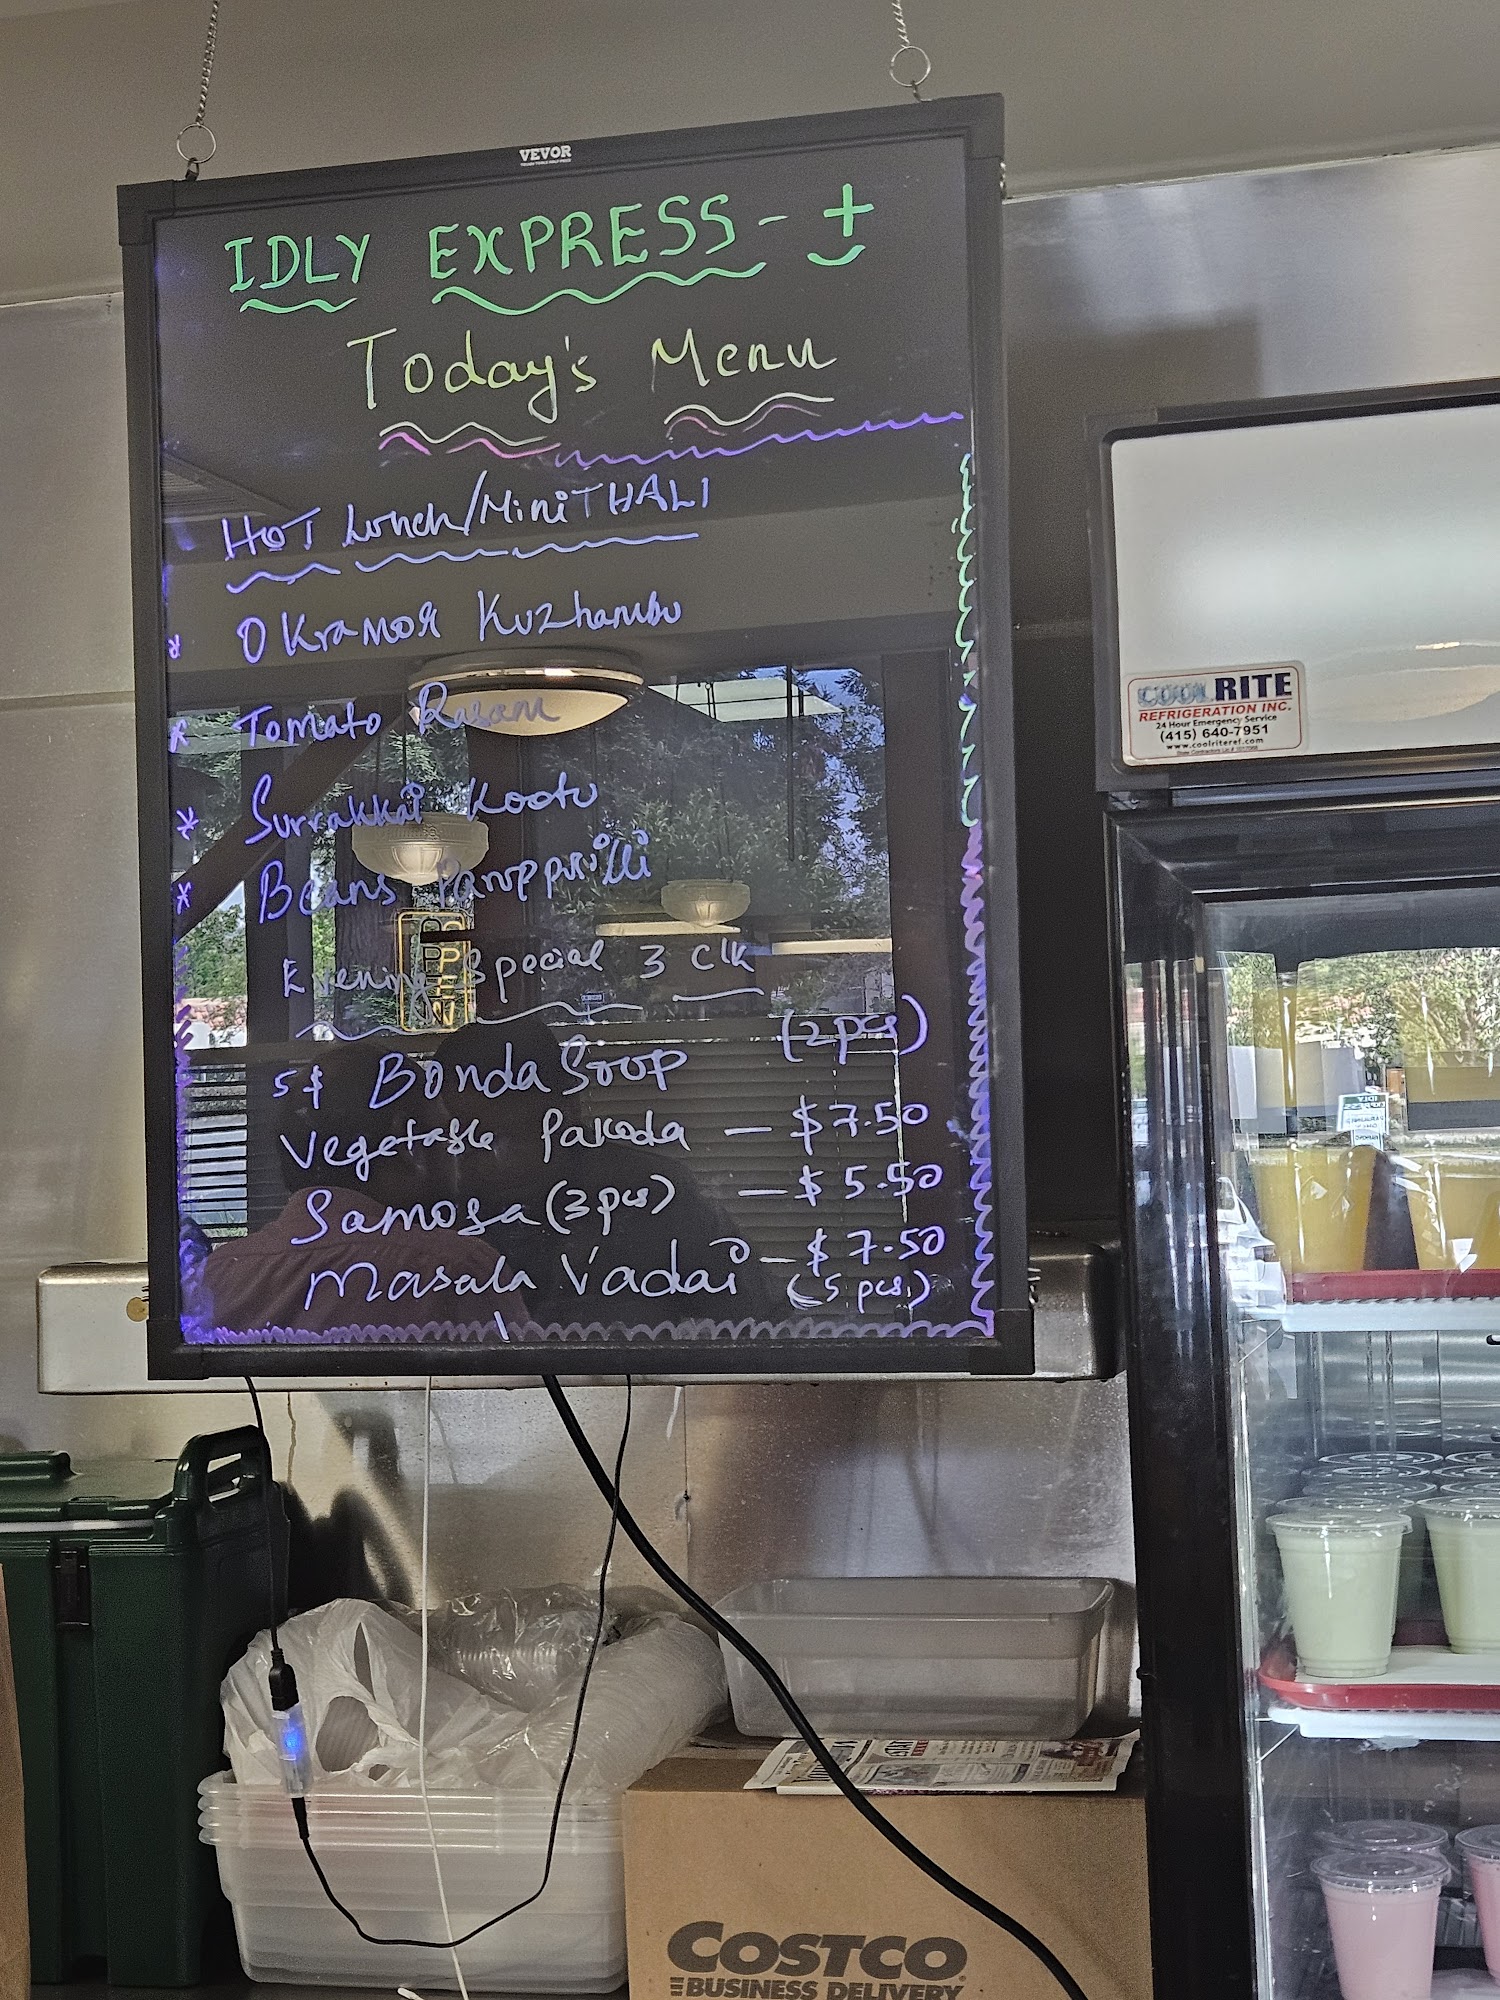 VEVOR
IDLY EXPRESS - +
Today's Menu
HOT Lunch/Mini THALI
* OKRAMOR Kuzhambu
* Tomato Rasam
* Surrakkai Kootu
* Beans Paruppusilli
Evening Special 3 Clk
5$ Bonda Soop (2 pcs)
Vegetable Pakoda — $7.50
Samosa (3 pcs) — $5.50
Masala Vadai — $7.50
(5 pcs)
OPEN
COOL RITE
REFRIGERATION INC.
24 Hour Emergency Service
(415) 640-7951
www.coolriteref.com
COSTCO
BUSINESS DELIVERY